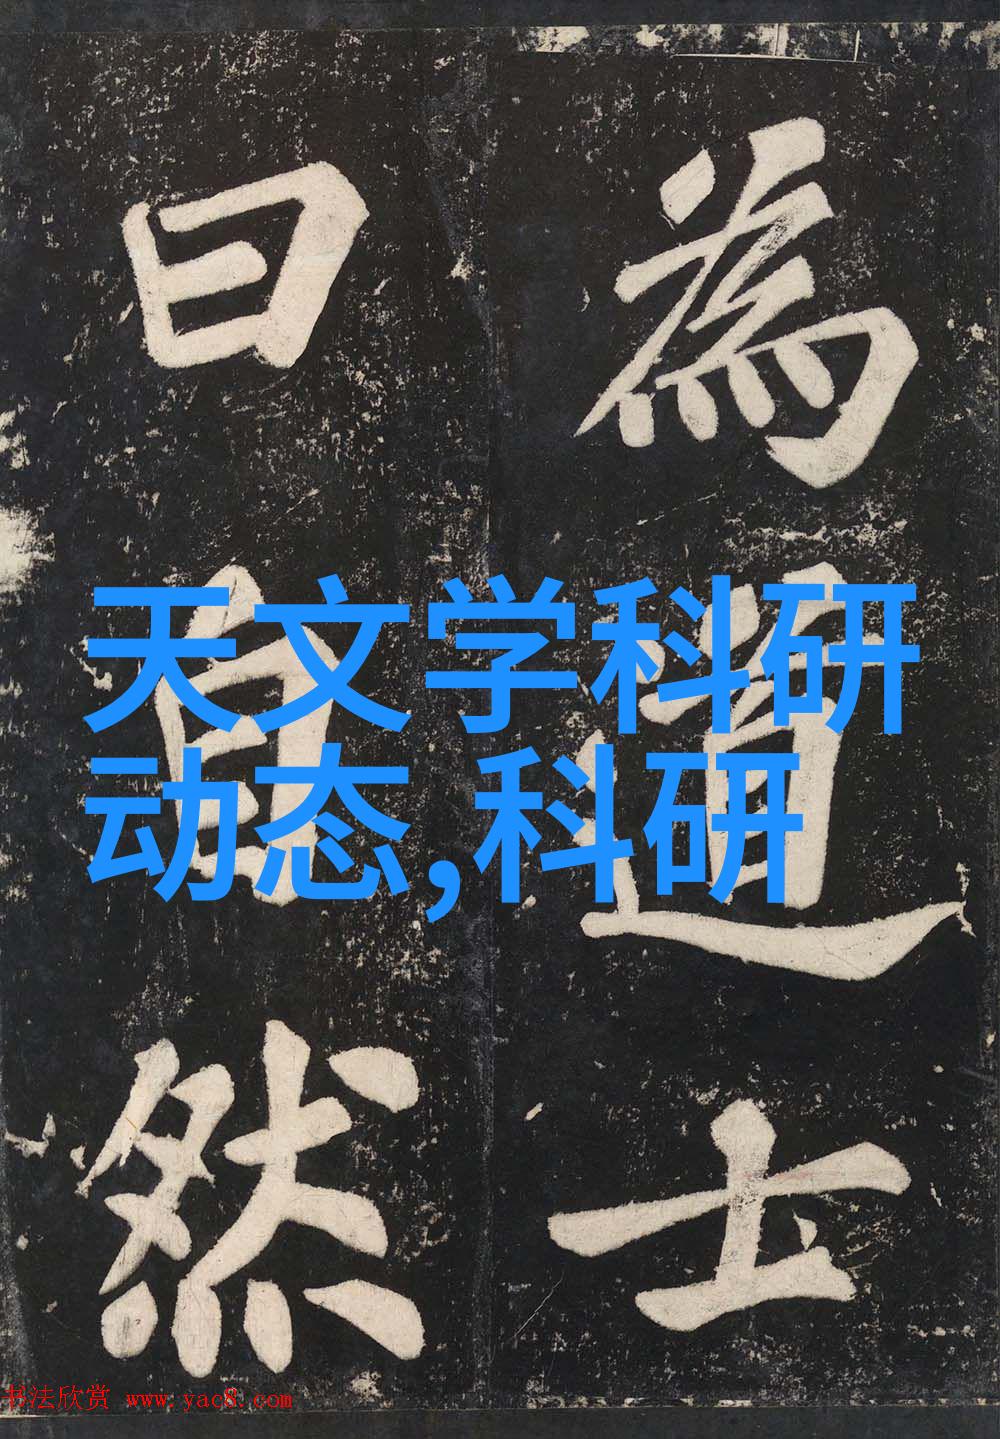 為道士
曰自然
天文学科研
动态,科研
书法欣赏 www.yac8.com